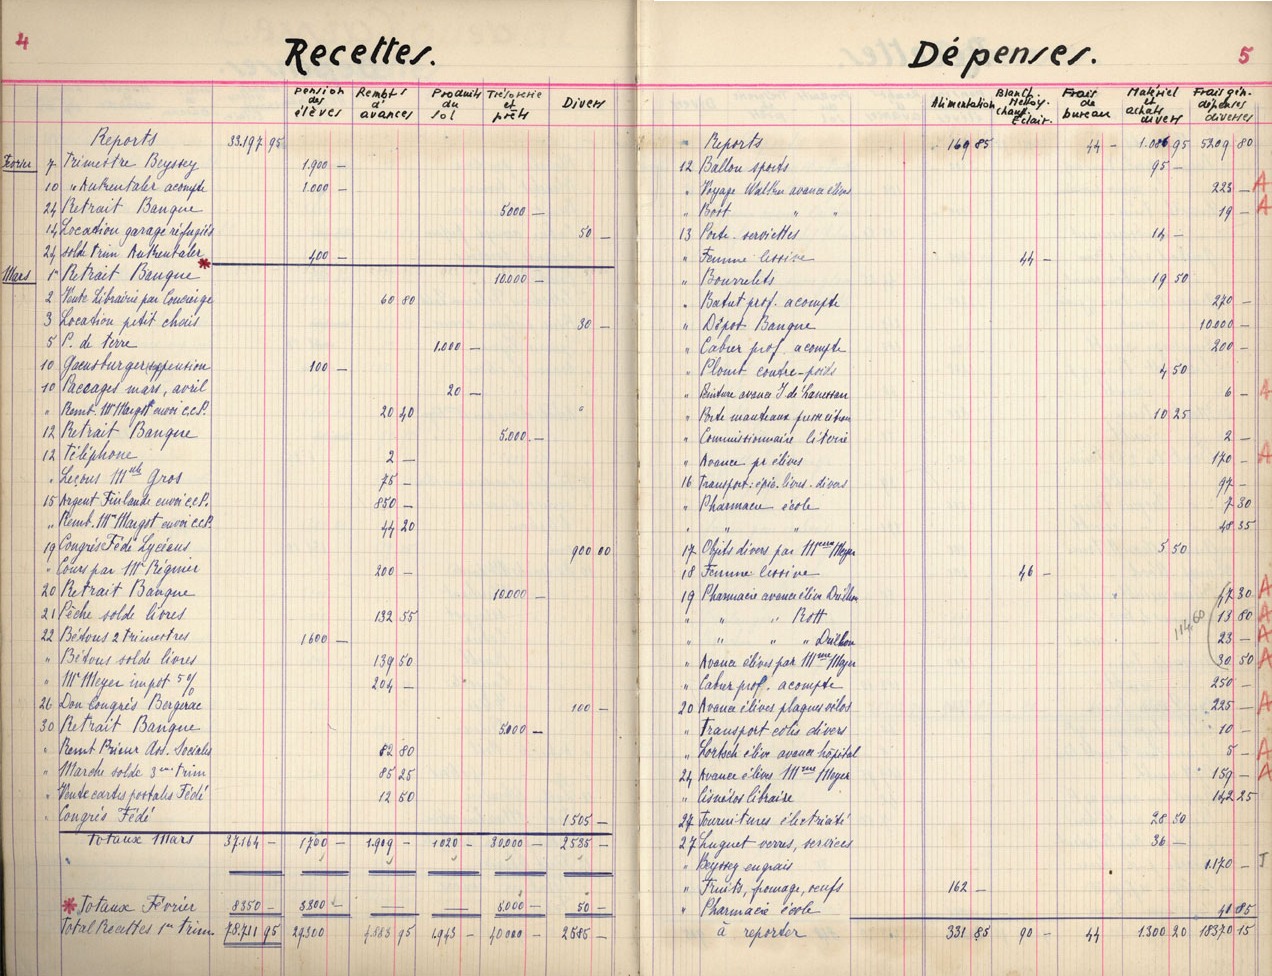 4
Recettes.
Pension des élèves
Rembts d'avances
Produits du sol
Trésorerie et prêts
Divers
Reports 33.197 95
Février 7 Trimestre Beyssey 1.900 —
10 " Ankentaler acompte 1.000 —
24 Retrait Banque 5000 —
14 Location garage réfugiés 50 —
24 solde trim Ankentaler 400 —
*
Mars 1er Retrait Banque 10.000 —
2 Vente Librairie par Concierge 60 80
3 Location petit chais 30 —
5 P. de terre 1.000 —
10 100 —
10 Paccages mars, avril 20 —
" Remb. Mr Margot envoi c.c.P. 20 40 "
12 Retrait Banque 5.000 —
12 Téléphone 2 —
" Leçons Melle Gros 75 —
15 Argent Finlande envoi c.c.P. 850 —
" Remb. Mr Margot envoi c.c.P. 44 20
19 Congrès Fédé Lycéens 900 00
" Cours par Mr Régnier 200 —
20 Retrait Banque 10.000 —
21 Pêche solde livres 132 55
22 Bétous 2 trimestres 1600 —
" Bétous solde livres 139 50
" Mr Meyer impot 5% 204 —
26 Don Congrès Bergerac 100 —
30 Retrait Banque 5.000 —
" Remt Prieur Ass. Sociales 82 80
" Marche solde 3me trim 85 25
" Vente cartes postales Fédé 12 50
" Congrès Fédé 1505 —
Totaux Mars 37.164 — 1700 — 1.909 — 1020 — 30.000 — 2535 —
* Totaux Février 8350 — 3.300 — — — 5.000 — 50 —
Total Recettes 1er trim. 78.711 95 29.300 95 1.943 — 40 000 — 2585 —
Dépenses.
5
Alimentation
Blanch. Nettoy. chauff. Éclair.
Frais de bureau
Matériel et achats divers
Frais gén. dépenses diverses
" Reports 169 85 44 — 1.086 95 5209 80
12 Ballon sports 95 —
" Voyage avance élèves 223 — A
" Rott " " 19 — A
13 Porte-serviettes 14 —
" Femme lessive 44 —
" Bourrelets 19 50
" Batut prof. acompte 270 —
" Dépot Banque 10.000 —
" Cabrer prof. acompte 200 —
" Plomt contre-poids 4 50
" avance J. de 6 — A
" Porte manteaux 10 25
" Commissionnaire literie 2 —
" Avance pr élèves 170 — A
16 Transport: épic. livres. divers 97 —
" Pharmacie école 7 30
" " " 48 35
17 Objets divers par Mme Meyer 5 50
18 Femme lessive 46 —
19 Pharmacie avance élève Drilhon " 47 30 A
" " " Rott 13 80 A
114,60
" " " " Drilhon 23 — A
" Avance élèves par Mme Meyer 30 50 A
" Cabrer prof. acompte 250 —
20 Avance élèves plaques vélos 225 — A
" Transport colis divers 10 —
" Lortsch élève avance hôpital 5 — A
24 Avance élèves Mme Meyer 159 — A
" libraire 142 25
27 Fournitures électricité 28 50
27 Huguet verres, services 36 —
" Beyssey engrais 1.170 — J
" Fruits, fromage, oeufs 162 —
" Pharmacie école 40 85
à reporter 331 85 90 — 44 1300 20 18370 15